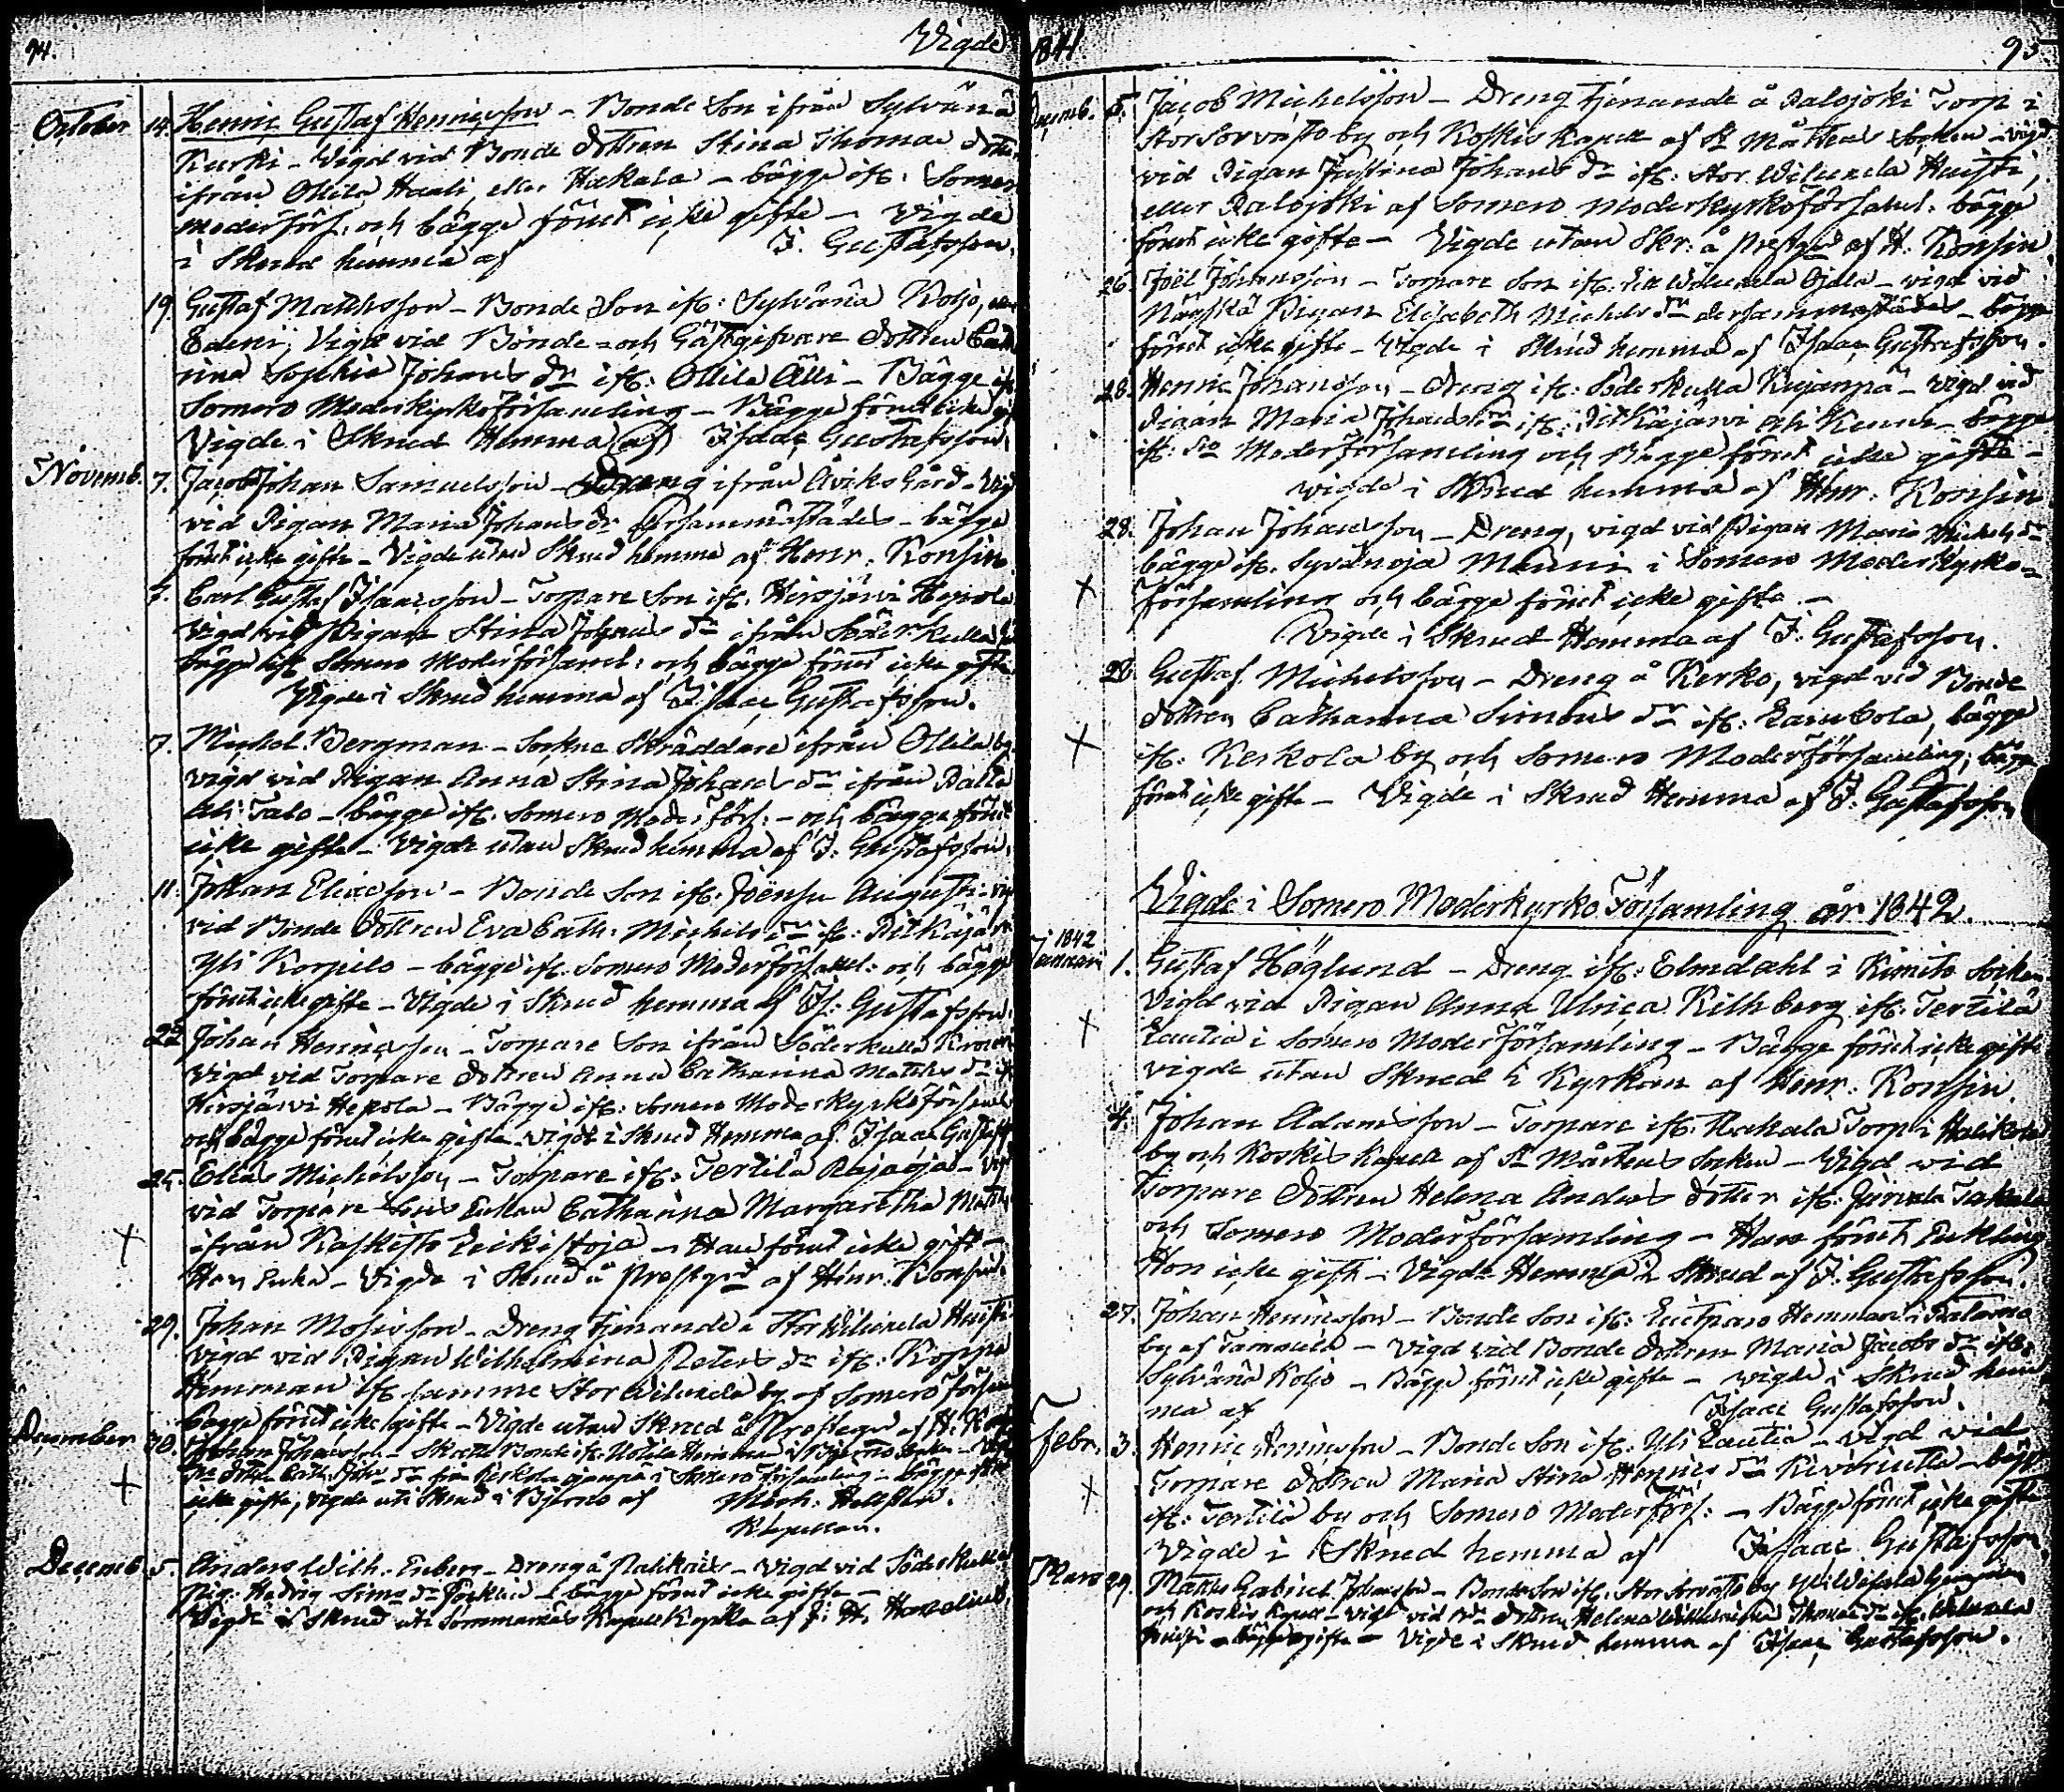 94.
Vigde
October 14. Henric Gustaf Henricsson - Bonde Son ifrån Sylvänä
Kurki - Vigd vid Bonde dottren Stina Thomae
ifrån Ollila Haali, eller Hakala - bägge ifr: Somero
moderförs. och bägge förut icke gifte - Vigde
i Skrud hemma af J. Gustafsson.
19. Gustaf Mattsson - Bonde Son ifr: Sylvänä Koljo,
Ederi; Vigd vid Bonde- och Gästgifvare dottren
Sophia Johans dr ifr: Ollila Älli - Bägge
Somero Moderkyrkoförsamling - Bägge förut icke
Vigde i Skrud Hemma af Isaac Gustafsson.
Novemb. 7. Jacob Johan Samuelsson - Dreng ifrån Åviks Gård -
vid Pigan Maria Johans dr dersammastädes - bägge
förut icke gifte - Vigde utan Skrud hemma af Henr. Konsin.
7. Carl Gustaf Isaacsson - Torpare Son ifr. Hirsjärvi Hepola
Vigd vid Pigan Stina Johans dr ifrån Söderkulla
bägge ifr. Somero Moderförsaml: och bägge förut icke gifte.
Vigde i Skrud hemma af Isaac Gustafsson.
7. Michel Bergman - Sockne Skräddare ifrån Ollila by
vigd vid Pigan Anna Stina Johans dr ifrån
Ali Talo - bägge ifr. Somero Moderförs: - och bägge förut
icke gifte - Vigde utan Skrud hemma af J. Gustafsson.
11. Johan Eliæsson - Bonde Son ifr. Joensu
vid Bonde dottren Eva Cath. Michels dr ifr: Pitkäjärvi
Yli Korpilo - bägge ifr. Somero Moderförsaml: och bägge
förut icke gifte - Vigde i Skrud hemma af Is: Gustafsson.
22. Johan Henricsson - Torpare Son ifrån Söderkulla
Vigd vid Torpare dottren Anna Catharina Matths dr
Hirsjärvi Hepola - Bägge ifr: Somero Moderkyrkoförsaml
och bägge förut icke gifte - vigde i Skrud Hemma af Isaac
25. Elias Michelsson - Torpare ifr: Terttilä Rajaoja -
vid Torpare Enkan Catharina Margaretha
ifrån Kaskisto - Han förut icke gift -
Hon Enka - Vigde i Skrud å Prestgrd af Henr: Konsin.
29. Johan Mosisson - Dreng tjenande å Stor Wiluxela Huisti
vigd vid Pigan Wilhelmina Peters dr ifr: Koppa
Hemman ifr samme Stor Wiluxela by af Somero
bägge förut icke gifte - Vigde utan Skrud å Prestegn af H.
December 30. Johan Johansson
icke gifte, vigde uti Skrud i Bjerno af Mich: Hellsten.
Decemb. 5. Anders Wilh. Enberg - Dreng å - Vigd vid Söderkulla
Pig. Hedvig Simons dr - bägge förut icke gifte -
Vigde i Skrud uti Sommarnäs Kapell Kyrka af J: H.
1841
95
Decemb. 5. Jacob Michelsson - Dreng tjenande å Palojoki Torp i
Stor Sorvasto by och Koskis Kapell af St Mårtens Socken - vigd
vid Pigan Justina Johans dr ifr: Stor Wiluxela Huisti,
eller Palojoki af Somero Moderkyrkoförsaml: bägge
förut icke gifte - Vigde utan Skr: å prestgrd af H. Konsin
26. Joël Johansson - Torpare Son ifr. Wiluxela Ojala - vigd vid
Pigan Elisabeth Michels dr dersammastädes - bägge
förut icke gifte - Vigde i Skrud hemma af Isaac Gustafsson.
28. Henric Johansson - Dreng ifr: Söderkulla Kujanpä - Vigd vid
Pigan Maria Johans dr ifr: Pitkäjärvi - bägge
ifr: Moderförsamling och Bägge förut icke gifte -
vigde i Skrud hemma af Henr. Konsin
28. Johan Johansson - Dreng, vigd vid Pigan Maria Michels dr
bägge ifr. Syvänoja Manni i Somero Moderkyrko=
församling och bägge förut icke gifte -
Vigde i Skrud Hemma af J. Gustafsson.
28. Gustaf Michelsson - Dreng å Kerko, vigd vid Bonde
dottren Catharina Simons dr ifr: bägge
ifr. Kerkola by och Somero Moderförsamling; bägge
förut icke gifte - Vigde i Skrud Hemma af J. Gustafsson
Vigde i Somero Moderkyrko Församling år 1842.
1842
Januari 1. Gustaf Höglund - Dreng ifr: Elmdahl i Kimito Socken
Vigd vid Pigan Anna Ulrica Kihlberg ifr. Terttilä
Lautia i Somero Moderförsamling - Bägge förut icke gifte
vigde utan Skrud i Kyrkan af Henr: Konsin.
4. Johan Adamsson - Torpare ifr. Hakala Torp i Halikola
by och Koskis Kapell af St Mårtens Socken - Vigd vid
Torpare dottren Helena Anders dotter ifr:
och Somero Moderförsamling - Han förut Enkling
Hon icke gift - Vigde Hemma i Skrud af J. Gustafsson.
27. Johan Henricsson - Bonde Son ifr: Hemman i
by af Tammela - Vigd vid Bonde dottren Maria Jacobs dr ifr.
Sylvänä Koljo - Bägge förut icke gifte - vigde i Skrud hem
ma af Isaac Gustafsson.
Febr. 3. Henric Henricsson - Bonde Son ifr: Yli Lautia - vigd vid
Torpare dottren Maria Stina Henrics dr - bägge
ifr: Terttilä by och Somero Moderförs: - Bägge förut icke gifte
Vigde i Skrud hemma af Isaac Gustafsson
Mars 29. Matts Gabriel Johansson - Bonde Son ifr. Stor Sorvasto by
och Koskis Kapell - Vigd vid dottren Helena Wilhelmina Thomæ dr ifr. Wiluxela
Huisti - bägge ogifte - Vigde i Skrud hemma af Isaac Gustafsson.